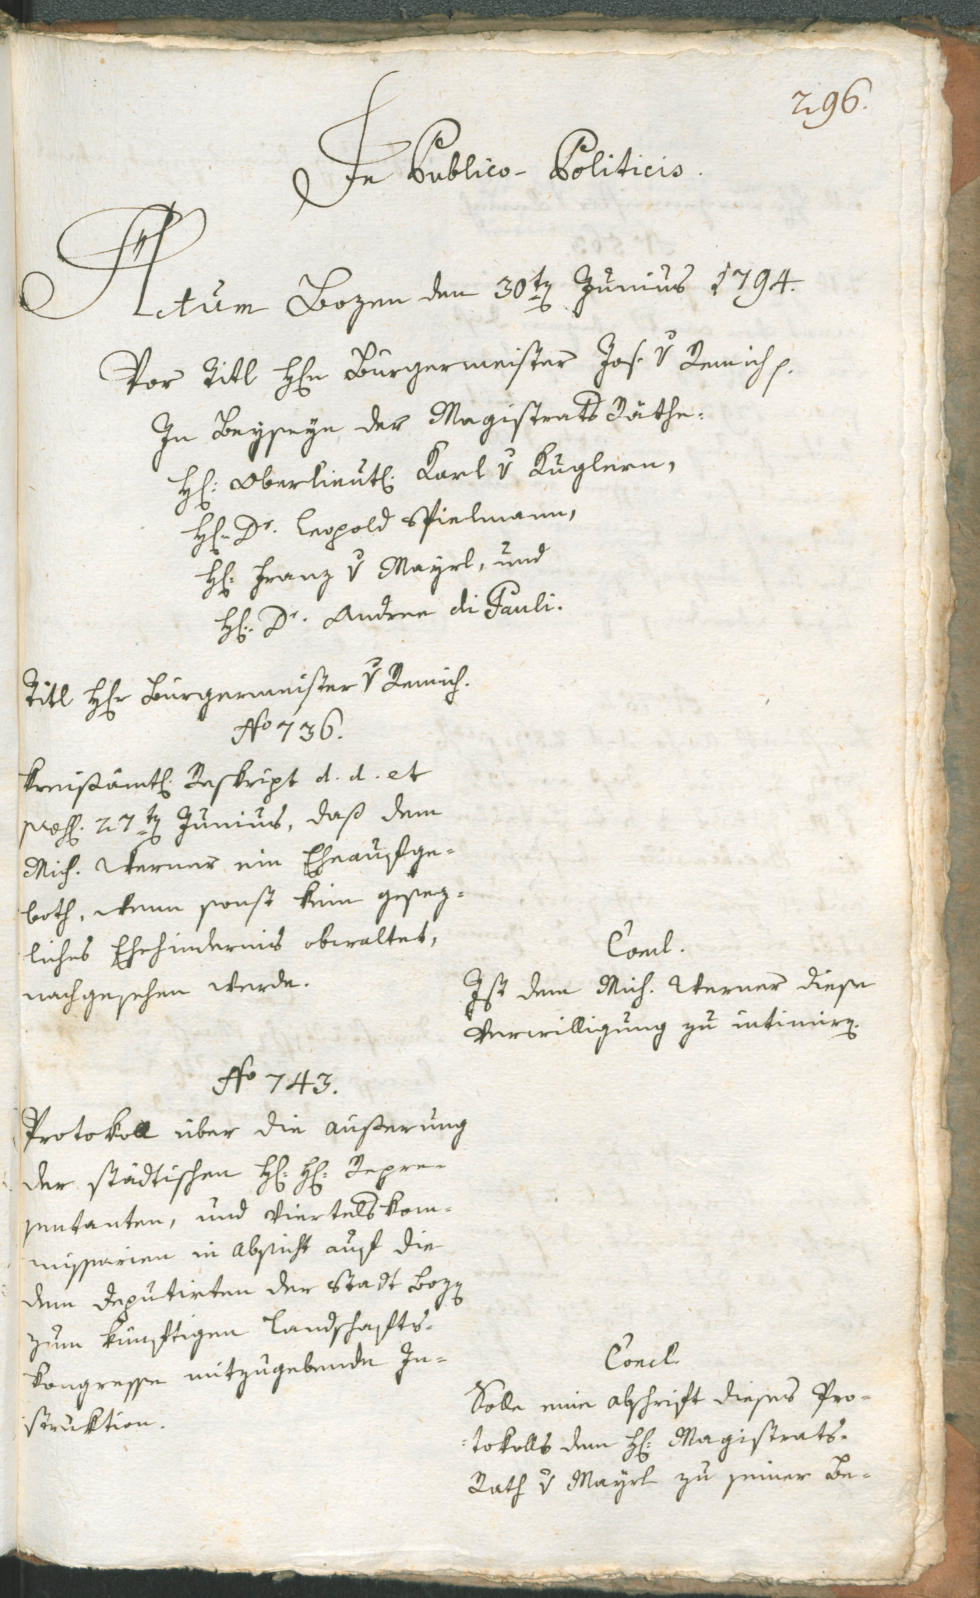 296.
In Publico-Politicis.
Actum Bozen den 30tn Junius 1794.
Vor Titl Hhn Bürgermeister Jos. v Remich p.
In Beyseyn der Magistrats Räthe:
Hl: Oberlieutl. Karl v Kuglern,
Hl. Dr. Leopold Spielmann,
Hl: Franz v Mayrl, und
Hl: Dr. Andree di Pauli.
Titl Hhr Bürgermeister v Remich.
No 736.
Kreißämtl. Reskript d. d. et
præs. 27tn Junius, daß dem
Mich. Werner ein Eheaufge-
both, wenn sonst kein gesez-
liches Ehehindernis obwaltet,
nachgesehen werde.
Concl.
Ist dem Mich. Werner diese
Verwilligung zu intimirn.
No 743.
Protokoll über die äußerung
der städtischen Hl: Hl: Repre-
sentanten, und Viertelskom-
missarien in Absicht auf die
dem Deputirten der Stadt Bozn
zum künftigen Landschafts-
kongresse mitzugebende In-
struktion.
Concl.
Solle eine Abschrift dieses Pro-
tokolls dem Hl: Magistrats-
Rath v Mayrl zu seiner Be-